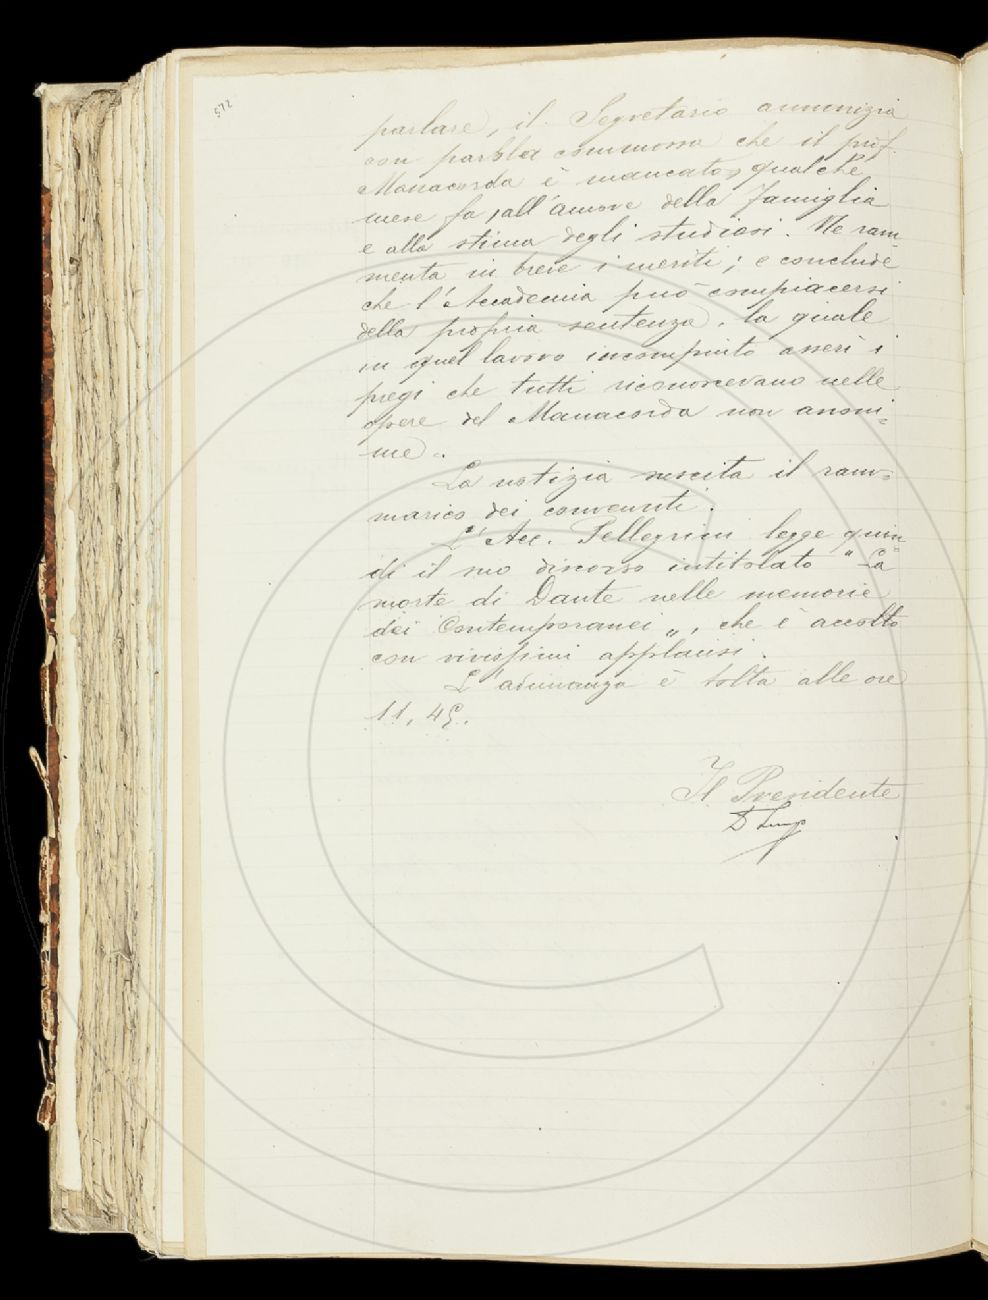 572
parlare, il Segretario annunzia
con parola commossa che il prof.
Manacorda è mancato, qualche
mese fa, all'amore della Famiglia
e alla stima degli studiosi. Ne ram-
menta in breve i meriti; e conclude
che l'Accademia può compiacersi
della propria sentenza, la quale
in quel lavoro incompiuto asserì i
pregi che tutti riconoscevano nelle
opere del Manacorda non anoni-
me.
La notizia suscita il ram-
marico dei convenuti.
L'Acc. Pellegrini legge quin-
di il suo discorso intitolato "La
morte di Dante nelle memorie
dei Contemporanei", che è accolto
con vivissimi applausi.
L'adunanza è tolta alle ore
11,45.
Il Presidente